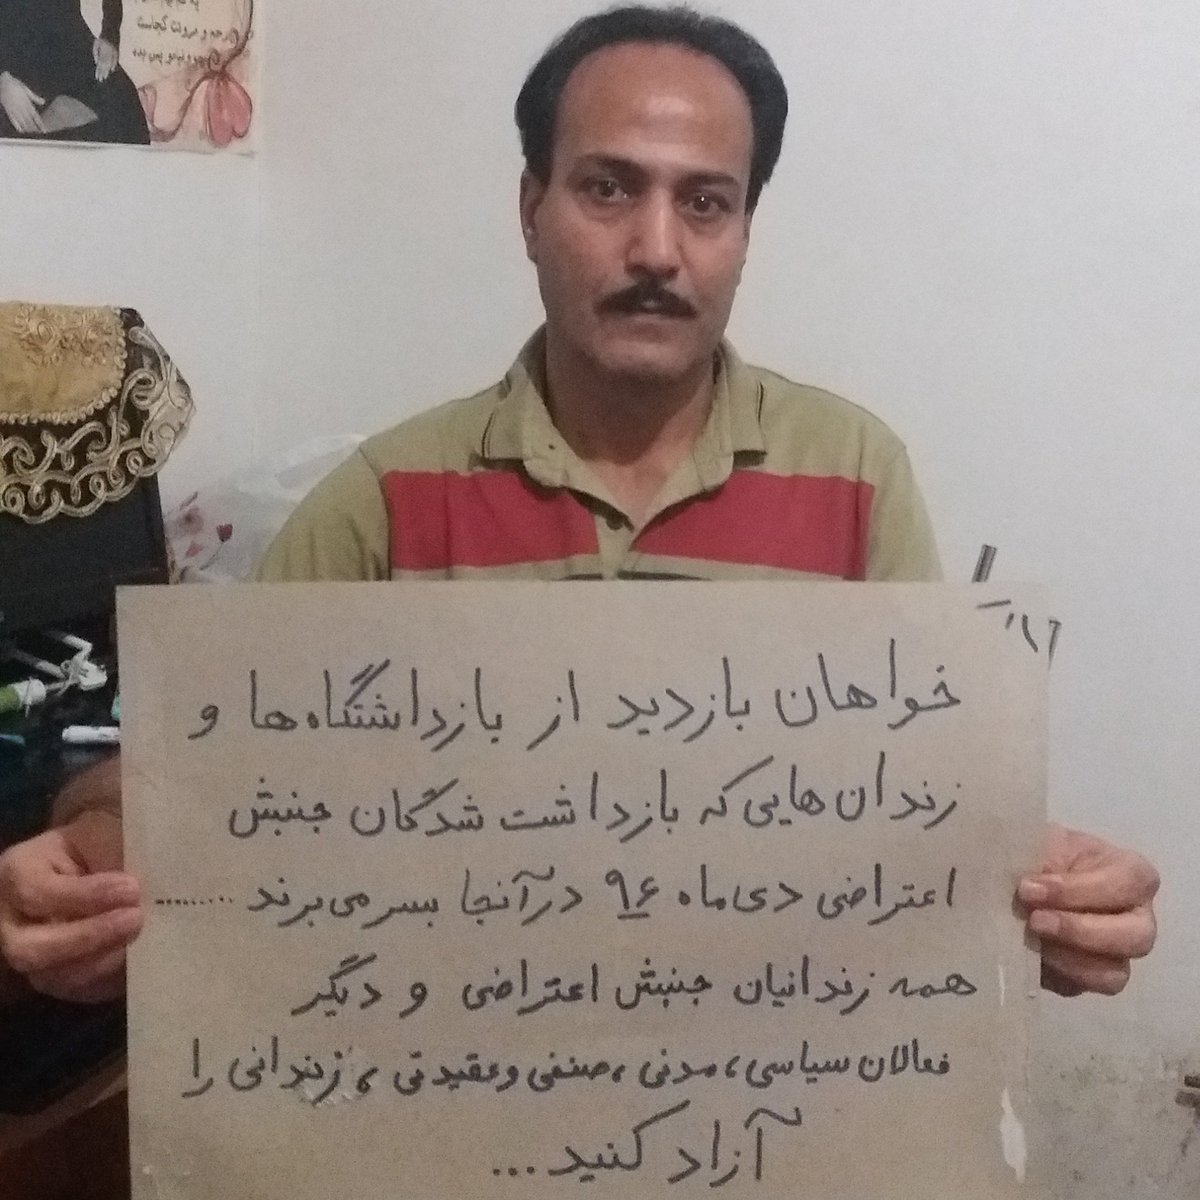 خواهان بازدید از بازداشتگاه‌ها و
زندان هایی که بازداشت شدگان جنبش
اعتراضی دی‌ماه ۹۶ در آنجا بسر می‌برند .........
همه زندانیان جنبش اعتراضی و دیگر
فعالان سیاسی، مدنی، صنفی وعقیدتی، زندانی را
آزاد کنید...